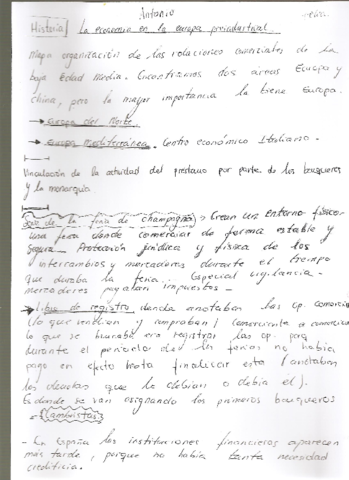 Antonio
Historia La economia en la europa preindustrial.
Mapa organización de las relaciones comerciales de la
baja Edad Media. Encontramos dos areas Europa y
china, pero la mayor importancia la tiene Europa.
→ Europa del Norte
→ Europa Mediterránea. Centro económico Italiano.
Vinculación de la actividad del prestamo por parte de los banqueros
y la monarquía
de la feria de champagne → Crean un entorno físico
una feria donde comerciar de forma estable y
segura - Protección jurídica y física de los
intercambios y mercaderes durante el tiempo
que duraba la feria. Especial vigilancia -
mercaderes pagaban impuestos -
→ Libro de registro donde anotaban las op. comercia
(lo que vendian y compraban) comerciante a comercia
lo que se buscaba era registrar las op. pero
durante el periodo de las ferias no había
pago en efecto hasta finalizar esta (anotaban
las deudas que le debian o debia el).
Es donde se van asignando los primeros banqueros
Cambistas
- En España las instituciones financieras aparecen
más tarde, porque no había tanta necesidad
crediticia.